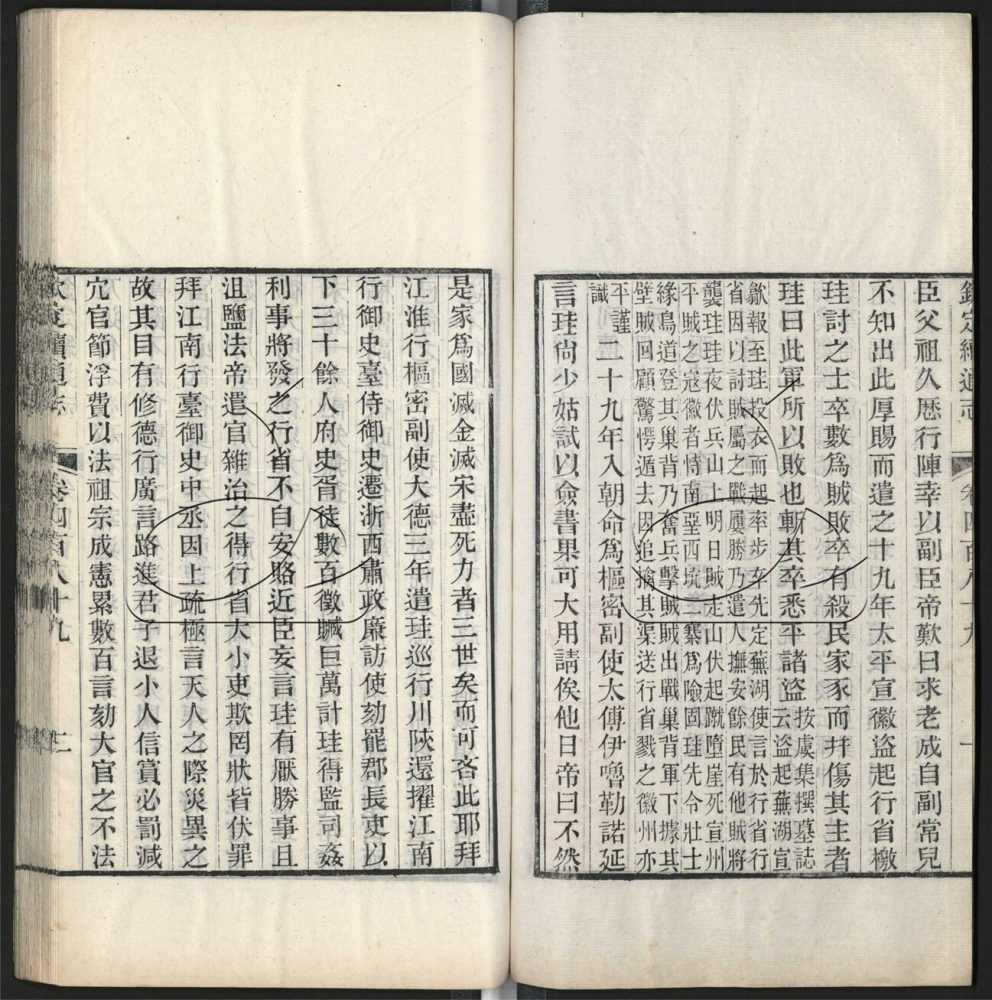 欽定續通志 卷四百八十九 一
臣父祖久歷行陣幸以副臣帝歎曰求老成自副常兒
不知出此厚賜而遣之十九年太平宣徽盜起行省檄
珪討之士卒數爲賊敗卒有殺民家豕而幷傷其主者
珪曰此軍所以敗也斬其卒悉平諸盜
按虞集撰墓誌
云盜起蕪湖宣
歙報至珪投衣而起率步卒先定蕪湖使言於行省行
省因以討賊屬之戰屢勝乃遣人撫安餘民有他賊將
襲珪珪夜伏兵山上明日賊走山伏起蹴墮崖死宣州
平賊之寇徽者恃南
緣鳥道登其巢背乃奮兵擊賊賊出戰巢背軍下據其
壁賊回顧驚愕遁去因追擒其渠送行省戮之徽州亦
平謹
識
二十九年入朝命爲樞密副使太傅伊嚕勒諾延
言珪尚少姑試以僉書果可大用請俟他日帝曰不然
是家爲國滅金滅宋盡死力者三世矣而可吝此耶拜
江淮行樞密副使大德三年遣珪巡行川陝還擢江南
行御史臺侍御史遷浙西肅政廉訪使劾罷郡長吏以
下三十餘人府史胥徒數百徵贓巨萬計珪得監司姦
利事將發之行省不自安賂近臣妄言珪有厭勝事且
沮鹽法帝遣官雜治之得行省大小吏欺罔狀皆伏罪
拜江南行臺御史中丞因上疏極言天人之際災異之
故其目有修德行廣言路進君子退小人信賞必罰減
宂官節浮費以法祖宗成憲累數百言劾大官之不法
欽定續通志 卷四百八十九 二